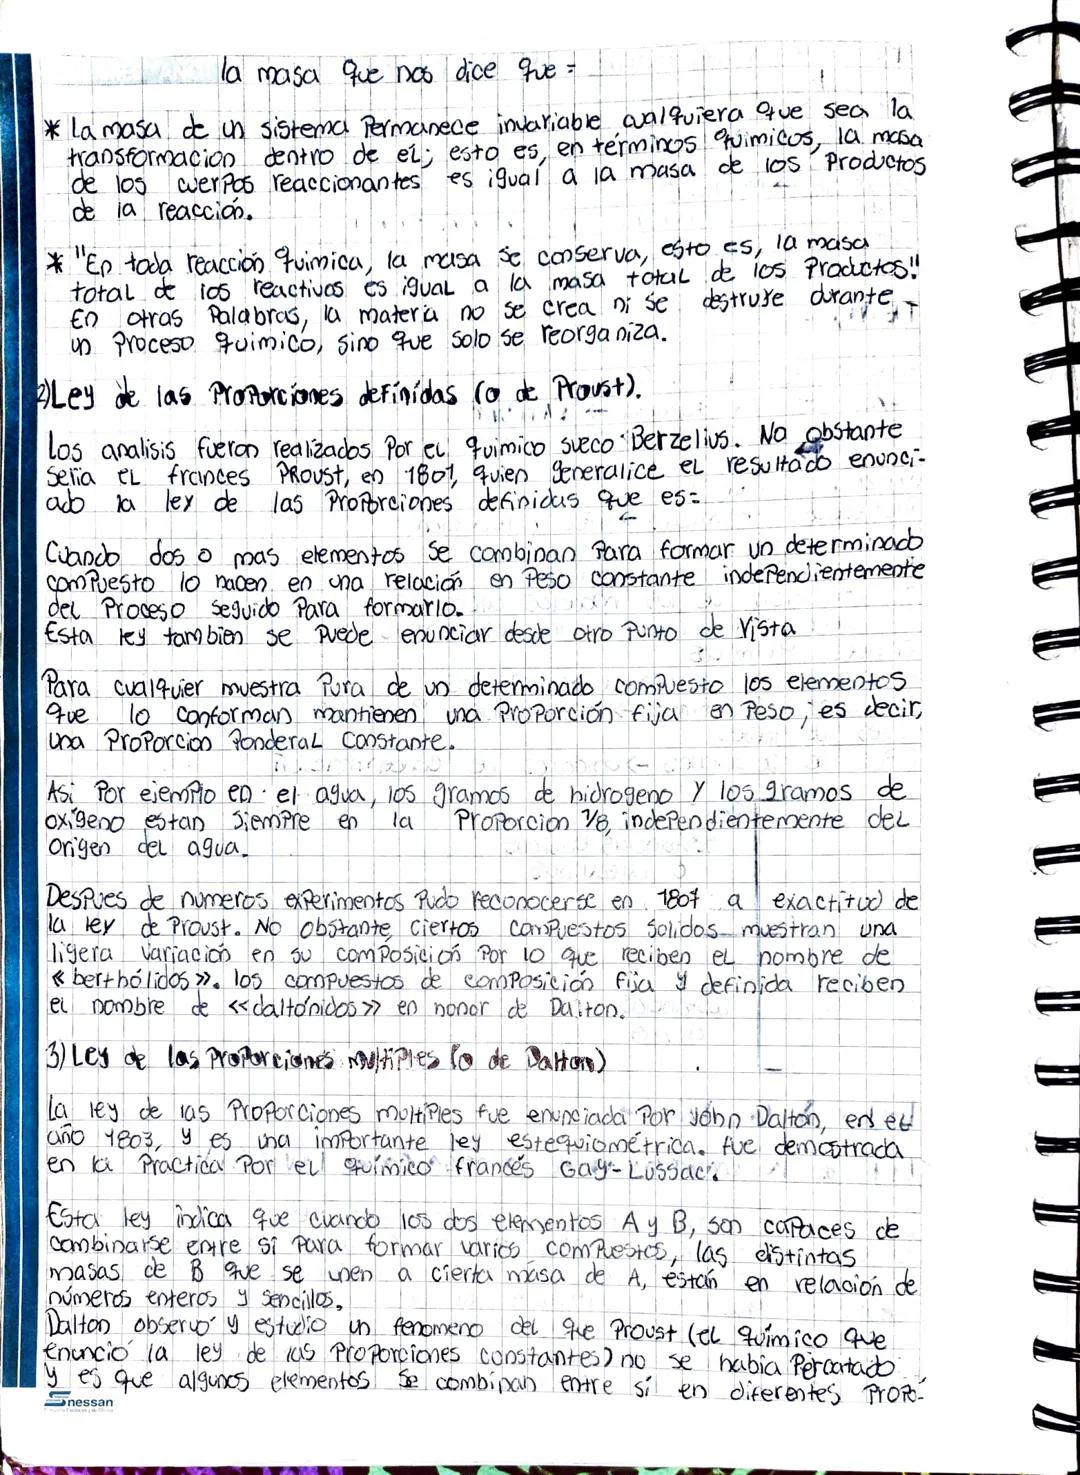 la masa que nos dice que =
* La masa de un sistema permanece invariable cualquiera que sea la
transformacion dentro de el; esto es, en términos quimicos, la masa
de los cuerpos reaccionantes es igual a la masa de los productos
de la reacción.
* "En toda reacción quimica, la masa se conserva, esto es, la masa
total de los reactivos es igual a la masa total de los productos."
En otras palabras, la materia no se crea ni se destruye durante
un proceso quimico, sino que solo se reorganiza.
2) Ley de las Proporciones definidas (o de Proust).
Los analisis fueron realizados por el quimico sueco Berzelius. No obstante
seria el frances Proust, en 1801, quien generalice el resultado enunci-
ado la ley de las proporciones definidas que es=
Cuando dos o mas elementos se combinan para formar un determinado
compuesto lo hacen en una relación en peso constante independientemente
del proceso seguido para formarlo.
Esta ley tambien se puede enunciar desde otro punto de vista
Para cualquier muestra pura de un determinado compuesto los elementos
que lo conforman mantienen una proporción fija en peso, es decir,
una proporcion ponderal constante.
Asi por ejemplo en el agua, los gramos de hidrogeno y los gramos de
oxígeno estan siempre en la proporcion 1/8, independientemente del
origen del agua.
Despues de numeros experimentos pudo reconocerse en 1807 a exactitud de
la ley de Proust. No obstante ciertos compuestos solidos muestran una
ligera variación en su composición por lo que reciben el nombre de
«berthólidos». los compuestos de composición fija y definida reciben
el nombre de «daltónidos» en honor de Dalton.
3) Ley de las Proporciones Multiples (o de Dalton)
La ley de las proporciones multiples fue enunciada por John Dalton, en el
año 1803, y es una importante ley estequiométrica. fue demostrada
en la practica por el químico francés Gay-Lussac.
Esta ley indica que cuando los dos elementos A y B, son capaces de
combinarse entre sí para formar varios compuestos, las distintas
masas de B que se unen a cierta masa de A, están en relación de
números enteros y sencillos.
Dalton observó y estudio un fenomeno del que Proust (el químico que
enunció la ley de las proporciones constantes) no se habia percatado
y es que algunos elementos se combinan entre sí en diferentes propo-
nessan